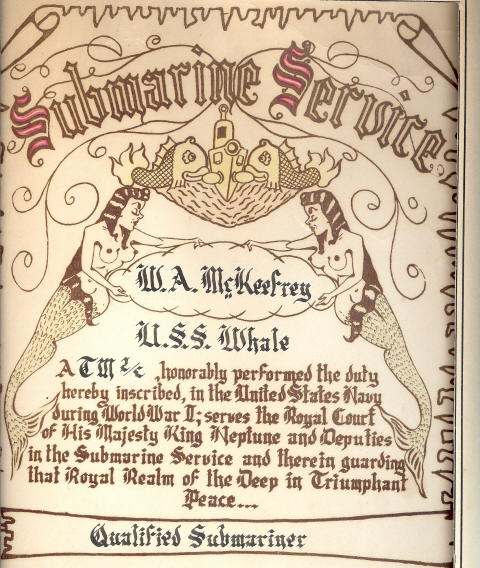 Submarine Service
W. A. McKeefrey
U.S.S. Whale
A TM 2/c honorably performed the duty
hereby inscribed, in the United States Navy
during World War II; serves the Royal Court
of His Majesty King Neptune and Deputies
in the Submarine Service and therein guarding
that Royal Realm of the Deep in Triumphant
Peace...
Qualified Submariner